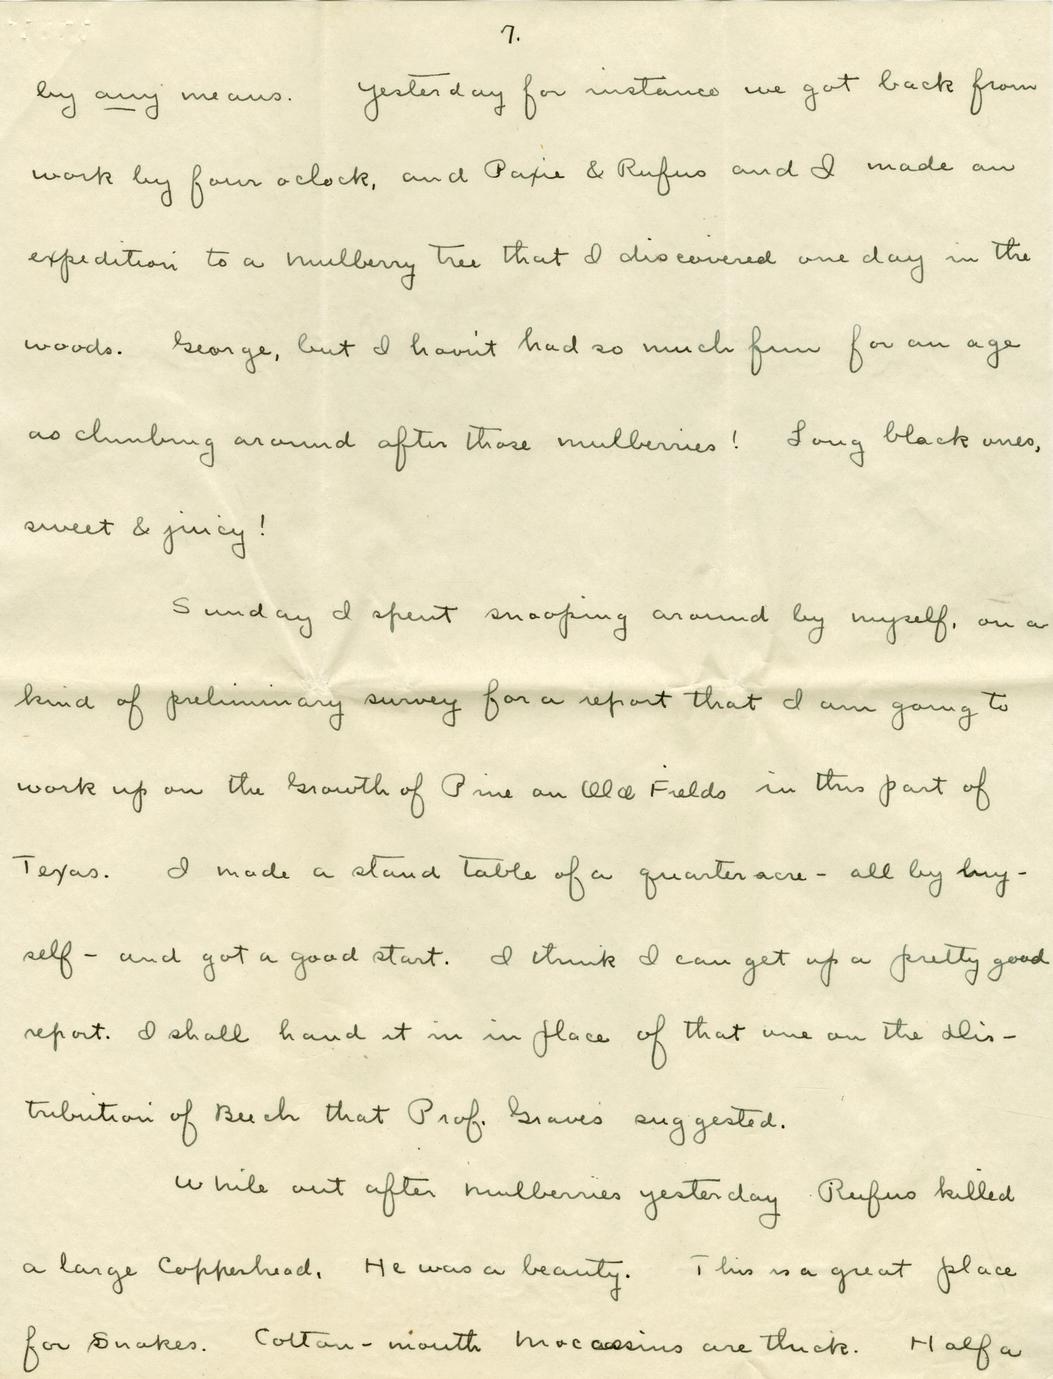 7.
by any means. Yesterday for instance we got back from
work by four oclock, and Paxie & Rufus and I made an
expedition to a mulberry tree that I discovered one day in the
woods. George, but I havn't had so much fun for an age
as climbing around after those mulberries! Long black ones,
sweet & juicy!
Sunday I spent snooping around by myself, on a
kind of preliminary survey for a report that I am going to
work up on the Growth of Pine on Old Fields in this part of
Texas. I made a stand table of a quarter acre - all by my-
self - and got a good start. I think I can get up a pretty good
report. I shall hand it in in place of that one on the dis-
tribution of Beech that Prof. Graves suggested.
While out after mulberries yesterday Rufus killed
a large Copperhead. He was a beauty. This is a great place
for Snakes. Cotton-mouth Moccassins are thick. Half a